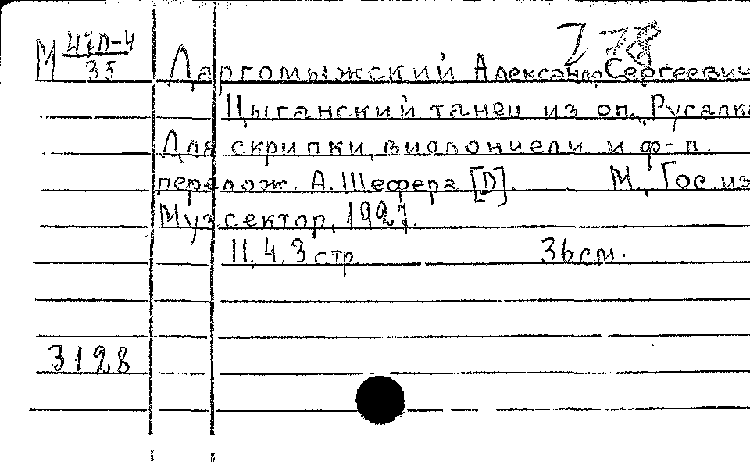 778
М 47п-4/35 Даргомыжский Александр Сергеевич
Цыганский танец из оп. Русалка
Для скрипки, виолончели и ф-п.
перелож. А. Шефера [D]. М., Гос. из
Муз сектор, 1927.
11, 4, 3 стр. 36 см.
3128